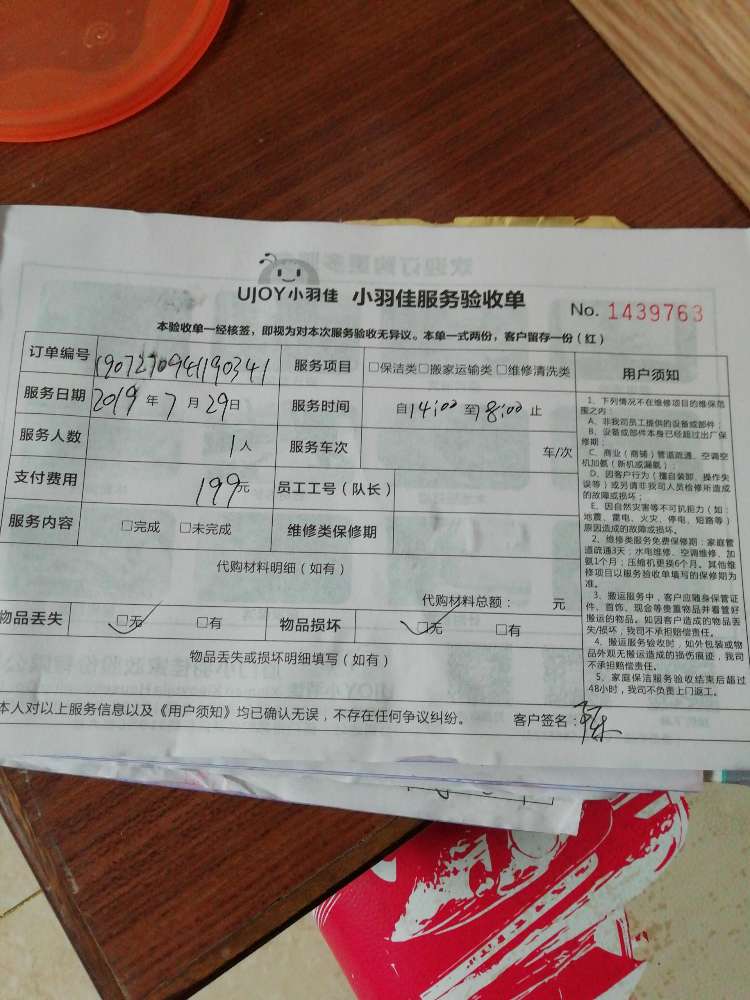 UJOY小羽佳 小羽佳服务验收单
No. 1439763
本验收单一经核签，即视为对本次服务验收无异议。本单一式两份，客户留存一份（红）
订单编号 190727094190341 服务项目 □保洁类□搬家运输类□维修清洗类
服务日期 2019年7月29日 服务时间 自14:00至18:00止
服务人数 1人 服务车次 车/次
支付费用 199元 员工工号（队长）
服务内容 □完成 □未完成 维修类保修期
代购材料明细（如有）
代购材料总额： 元
物品丢失 □无 □有 物品损坏 □无 □有
物品丢失或损坏明细填写（如有）
本人对以上服务信息以及《用户须知》均已确认无误，不存在任何争议纠纷。 客户签名：
用户须知
1、下列情况不在维修项目的维保范
围之内：
A、非我司员工提供的设备或部件；
B、设备或部件本身已经超过出厂保
修期；
C、商业（商铺）管道疏通、空调空
机加氨（新机或漏氨）；
D、因客户行为（擅自装卸、操作失
误等）或另请非我司人员检修所造成
的故障或损坏；
E、因自然灾害等不可抗力（如：
地震、雷电、火灾、停电、短路等）
原因造成的故障或损坏。
2、维修类服务免费保修期：家庭管
道疏通3天；水电维修、空调维修、加
氨1个月；压缩机更换6个月。其他维
修项目以服务验收单填写的保修期为
准。
3、搬运服务中，客户应随身保管证
件、首饰、现金等贵重物品并看管好
搬运的物品。如因客户造成的物品丢
失/损坏，我司不承担赔偿责任。
4、搬运服务验收时，如外包装或物
品外观无搬运造成的损伤痕迹，我司
不承担赔偿责任。
5、家庭保洁服务验收结束后超过
48小时，我司不负责上门返工。